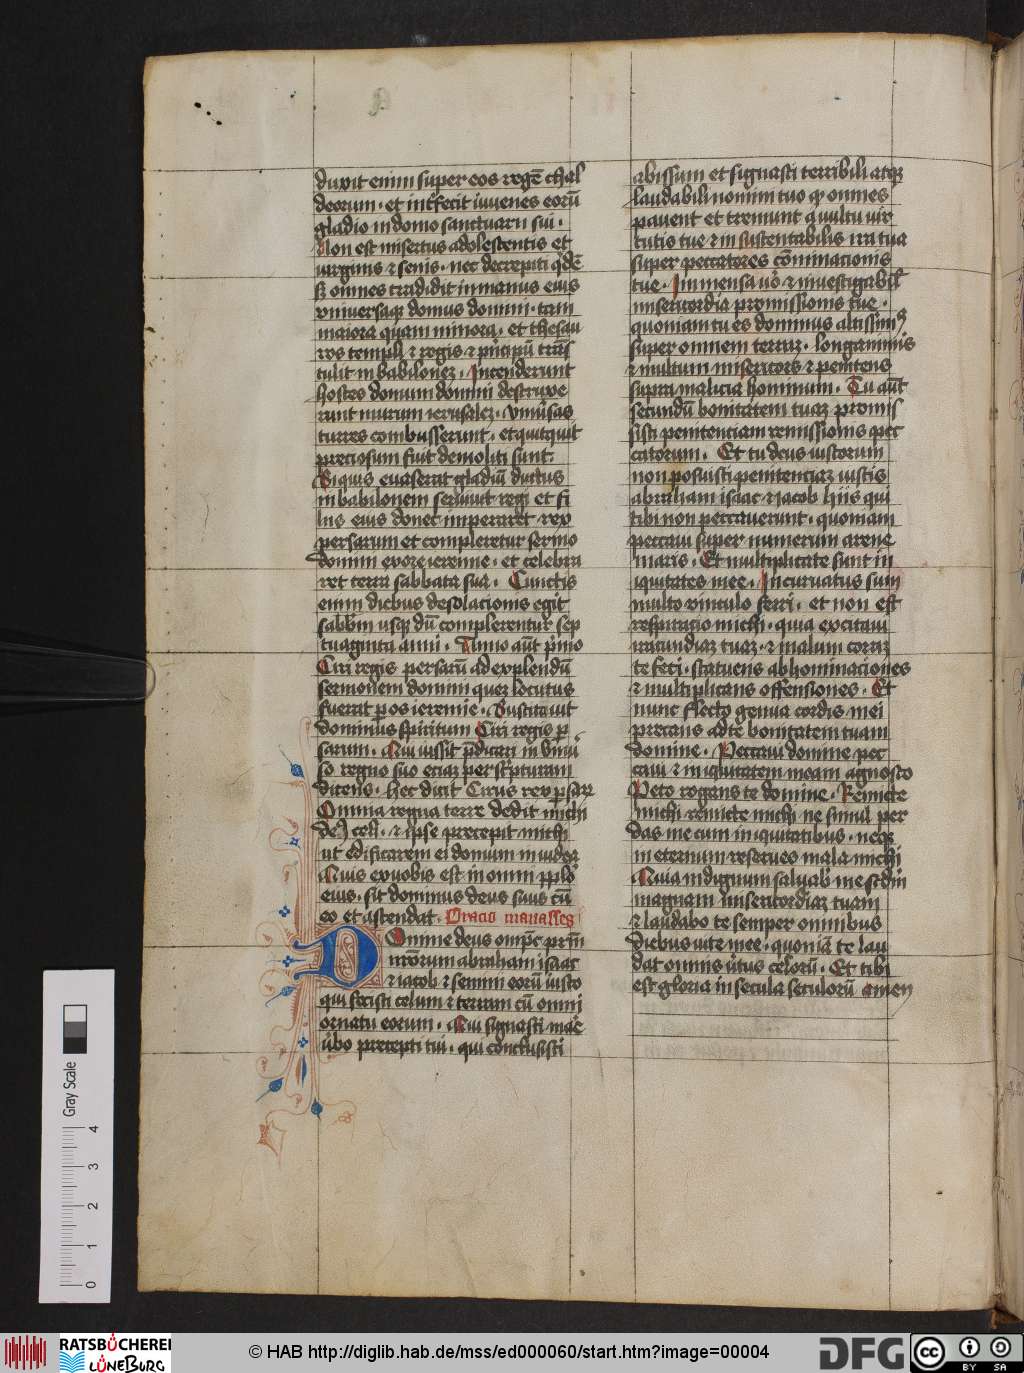 duxit enim super eos regē chal
deorum · et int̄fecit iuvenes eorū
gladio in domo sanctuarii sui ·
Non est misertus adolescentis et
virginis ⁊ senis · nec decrepiti q̄dē
sꝫ omnes tradidit in manus eius
vniversaqꝫ domus domini · tam
maiora quam minora · et thesau
ros templi ⁊ regis ⁊ p̄ncipū trās
tulit in babiloneꝫ · Incenderunt
hostes domum domini destruxe
runt murum ierusaleꝫ · vniv̄sas
turres combusserunt · et quitquit
preciosum fuit demoliti sunt
Siquis evaserat gladiū ductus
in babilonem serviuit regi et fi
liis eius donec imperaret rex
persarum et compleretur sermo
domini ex ore ieremie · et celebra
ret terra sabbata sua · Cunctis
enim diebus desolacionis egit
sabb̄m usqꝫ dū complerentur sep
tuaginta anni · Anno aūt p̄mo
Ciri regis persarū ad explendū
sermonem domini queꝫ locutus
fuerat ꝑ os ieremie · Suscitauit
dominus spiritum Ciri regis ꝑ
sarum · Qui iussit p̄dicari in vniū
so regno suo etiaꝫ per sc̄pturam
dicens · hec dicit Cirus rex ꝑsaꝝ
Omnia regna terre dedit michi
deꝰ celi · ⁊ ip̄se precepit michi
ut edificarem ei domum in iudea
Quis ex vobis est in omni pp̄lo
eius · sit dominus deus suus cū
eo et ascendat · Oracio manasses
Domine deus omp̄c pr̄m
nr̄orum abraham isaac
⁊ iacob ⁊ semini eorū iusto
qui fecisti celum ⁊ terram cū omni
ornatu eorum · Qui signasti mar̄e
v̄bo precepti tui · qui conclusisti
abissum et signasti terribili atqꝫ
laudabili nomini tuo qꝫ omnes
pavent et tremunt a vultu vir
tutis tue ⁊ in sustentabilis ira tua
super peccatores cōminacionis
tue · Inmensa v̄o ⁊ investigabil̄
misericordia promissionis tue ·
quoniam tu es dominus altissimꝰ
super omnem terraꝫ · longanimis
⁊ multum misericors ⁊ penitens
supra malicia hominum · Tu aūt
secundū bonitatem tuaꝫ promis
sisti penitenciam remissionis pec
catorum · Et tu deus iustorum
non posuisti penitenciaꝫ iustis
abraham isaac ⁊ iacob hiis qui
tibi non peccaverunt · quoniam
peccavi super numerum arene
maris · Et multiplicate sunt in
iquitates mee · Incuruatus sum
multo vinculo ferri · et non est
respiracio michi · quia excitaui
iracundiaꝫ tuaꝫ · ⁊ malum coraꝫ
te feci · statuens abhominaciones
⁊ multiplicans offensiones · Et
nunc flecto genua cordis mei
precans ad te bonitatem tuam
domine · Peccaui domine pec
caui ⁊ iniquitatem meam agnosco
Peto rogans te domine · Remicte
michi remicte michi ne simul per
das me cum iniquitatibus · neqꝫ
in eternum reserves mala michi
Quia indignum saluab̄ me sc̄dm
magnam misericordiaꝫ tuam
⁊ laudabo te semper omnibus
diebus vite mee · quoniā te lau
dat omnis v̄tus celorū · Et tibi
est gloria in secula seculorū amen
Gray Scale
0 1 2 3 4
RATSBÜCHEREI LÜNEBURG
© HAB http://diglib.hab.de/mss/ed000060/start.htm?image=00004
DFG
cc BY SA